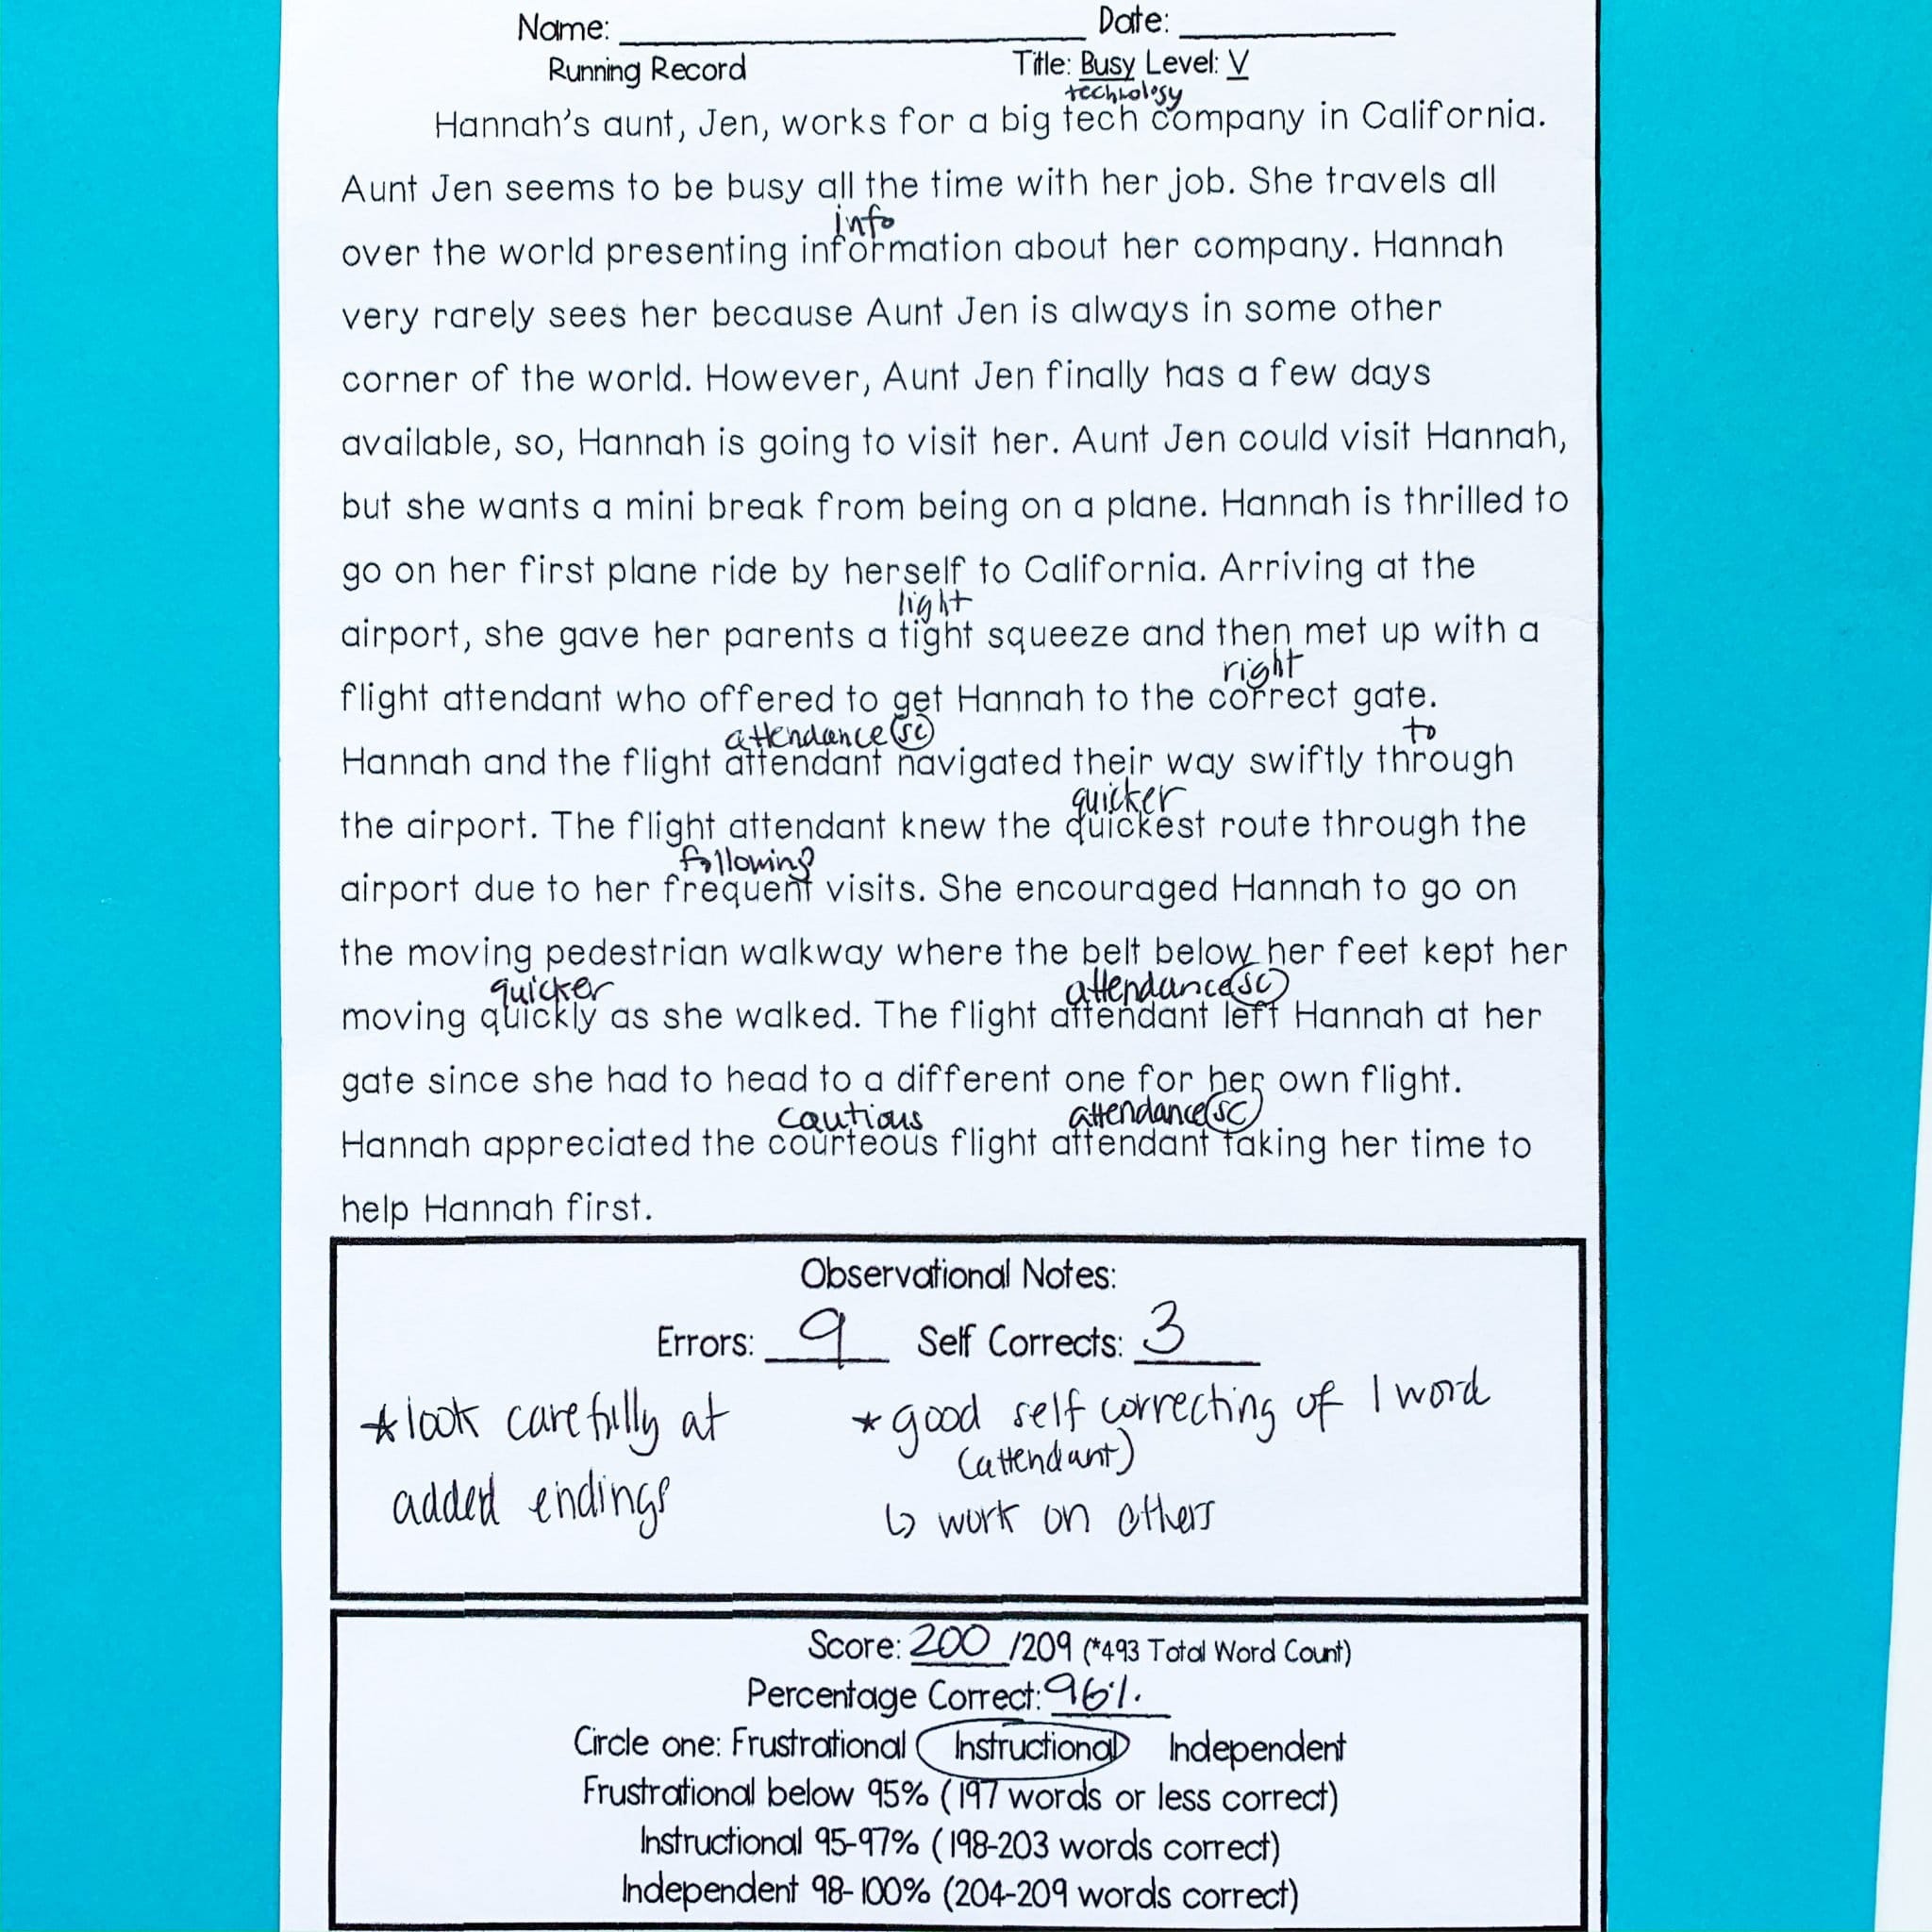 Name: ____________ Date: ____________
Running Record Title: Busy Level: V
technology
Hannah's aunt, Jen, works for a big tech company in California.
Aunt Jen seems to be busy all the time with her job. She travels all
info
over the world presenting information about her company. Hannah
very rarely sees her because Aunt Jen is always in some other
corner of the world. However, Aunt Jen finally has a few days
available, so, Hannah is going to visit her. Aunt Jen could visit Hannah,
but she wants a mini break from being on a plane. Hannah is thrilled to
go on her first plane ride by herself to California. Arriving at the
light
airport, she gave her parents a tight squeeze and then met up with a
right
flight attendant who offered to get Hannah to the correct gate.
attendance SC to
Hannah and the flight attendant navigated their way swiftly through
quicker
the airport. The flight attendant knew the quickest route through the
following
airport due to her frequent visits. She encouraged Hannah to go on
the moving pedestrian walkway where the belt below her feet kept her
quicker attendance SC
moving quickly as she walked. The flight attendant left Hannah at her
gate since she had to head to a different one for her own flight.
cautious attendance SC
Hannah appreciated the courteous flight attendant taking her time to
help Hannah first.
Observational Notes:
Errors: 9 Self Corrects: 3
*look carefully at
added endings
*good self correcting of 1 word
(attendant)
↳ work on others
Score: 200 /209 (*493 Total Word Count)
Percentage Correct: 96%.
Circle one: Frustrational Instructional Independent
Frustrational below 95% (197 words or less correct)
Instructional 95-97% (198-203 words correct)
Independent 98-100% (204-209 words correct)